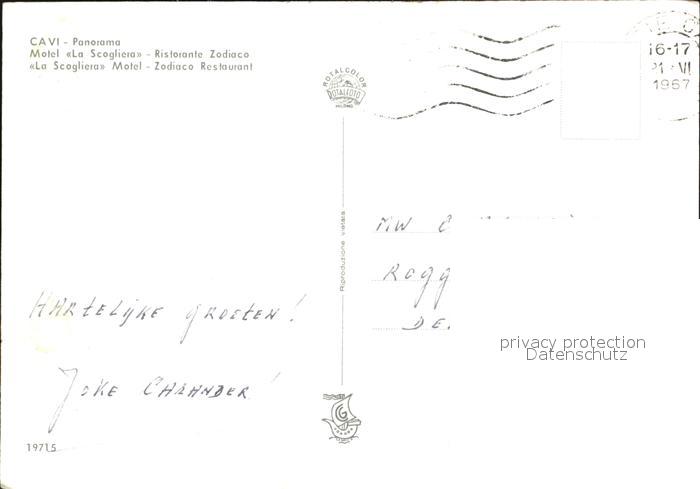 CAVI - Panorama
Motel «La Scogliera» - Ristorante Zodiaco
«La Scogliera» Motel - Zodiaco Restaurant
ROTALCOLOR
ROTALFOTO
MILANO
16-17
21 VI
1967
Riproduzione vietata
MW
ROGG
DE.
privacy protection
Datenschutz
HARTELIJKE GROETEN!
JOKE CARANDER!
19715